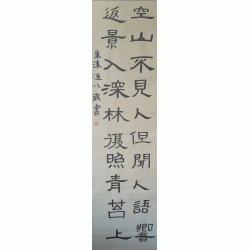 空山不見人但聞人語響
返景入深林復照青苔上
八歲書